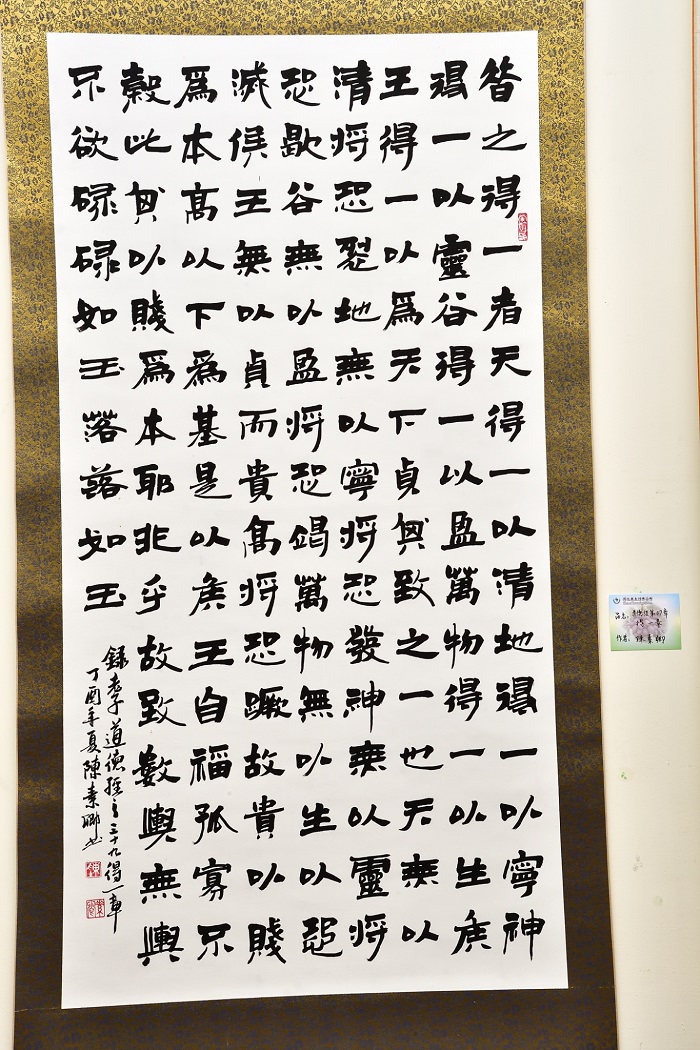 昔之得一者天得一以清地得一以寧神
得一以靈谷得一以盈萬物得一以生侯
王得一以爲天下貞其致之一也天無以
清將恐裂地無以寧將恐發神無以靈將
恐歇谷無以盈將恐竭萬物無以生以恐
滅侯王無以貞而貴高將恐蹶故貴以賤
爲本高以下爲基是以侯王自福孤寡不
穀此其以賤爲本耶非乎故致數輿無輿
不欲碌碌如玉落落如玉
録老子道德經之三十九得一章
丁酉年夏陳素卿书
作者：陳素卿